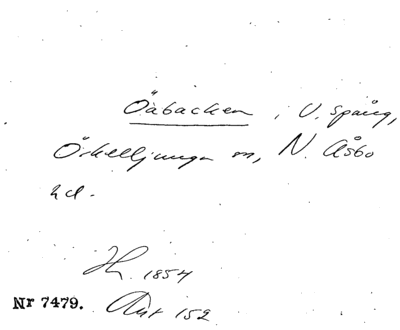 Öåbacken i V. Spång,
Örkelljunga sn, N. Åsbo
hd.
1854
Nr 7479. 152